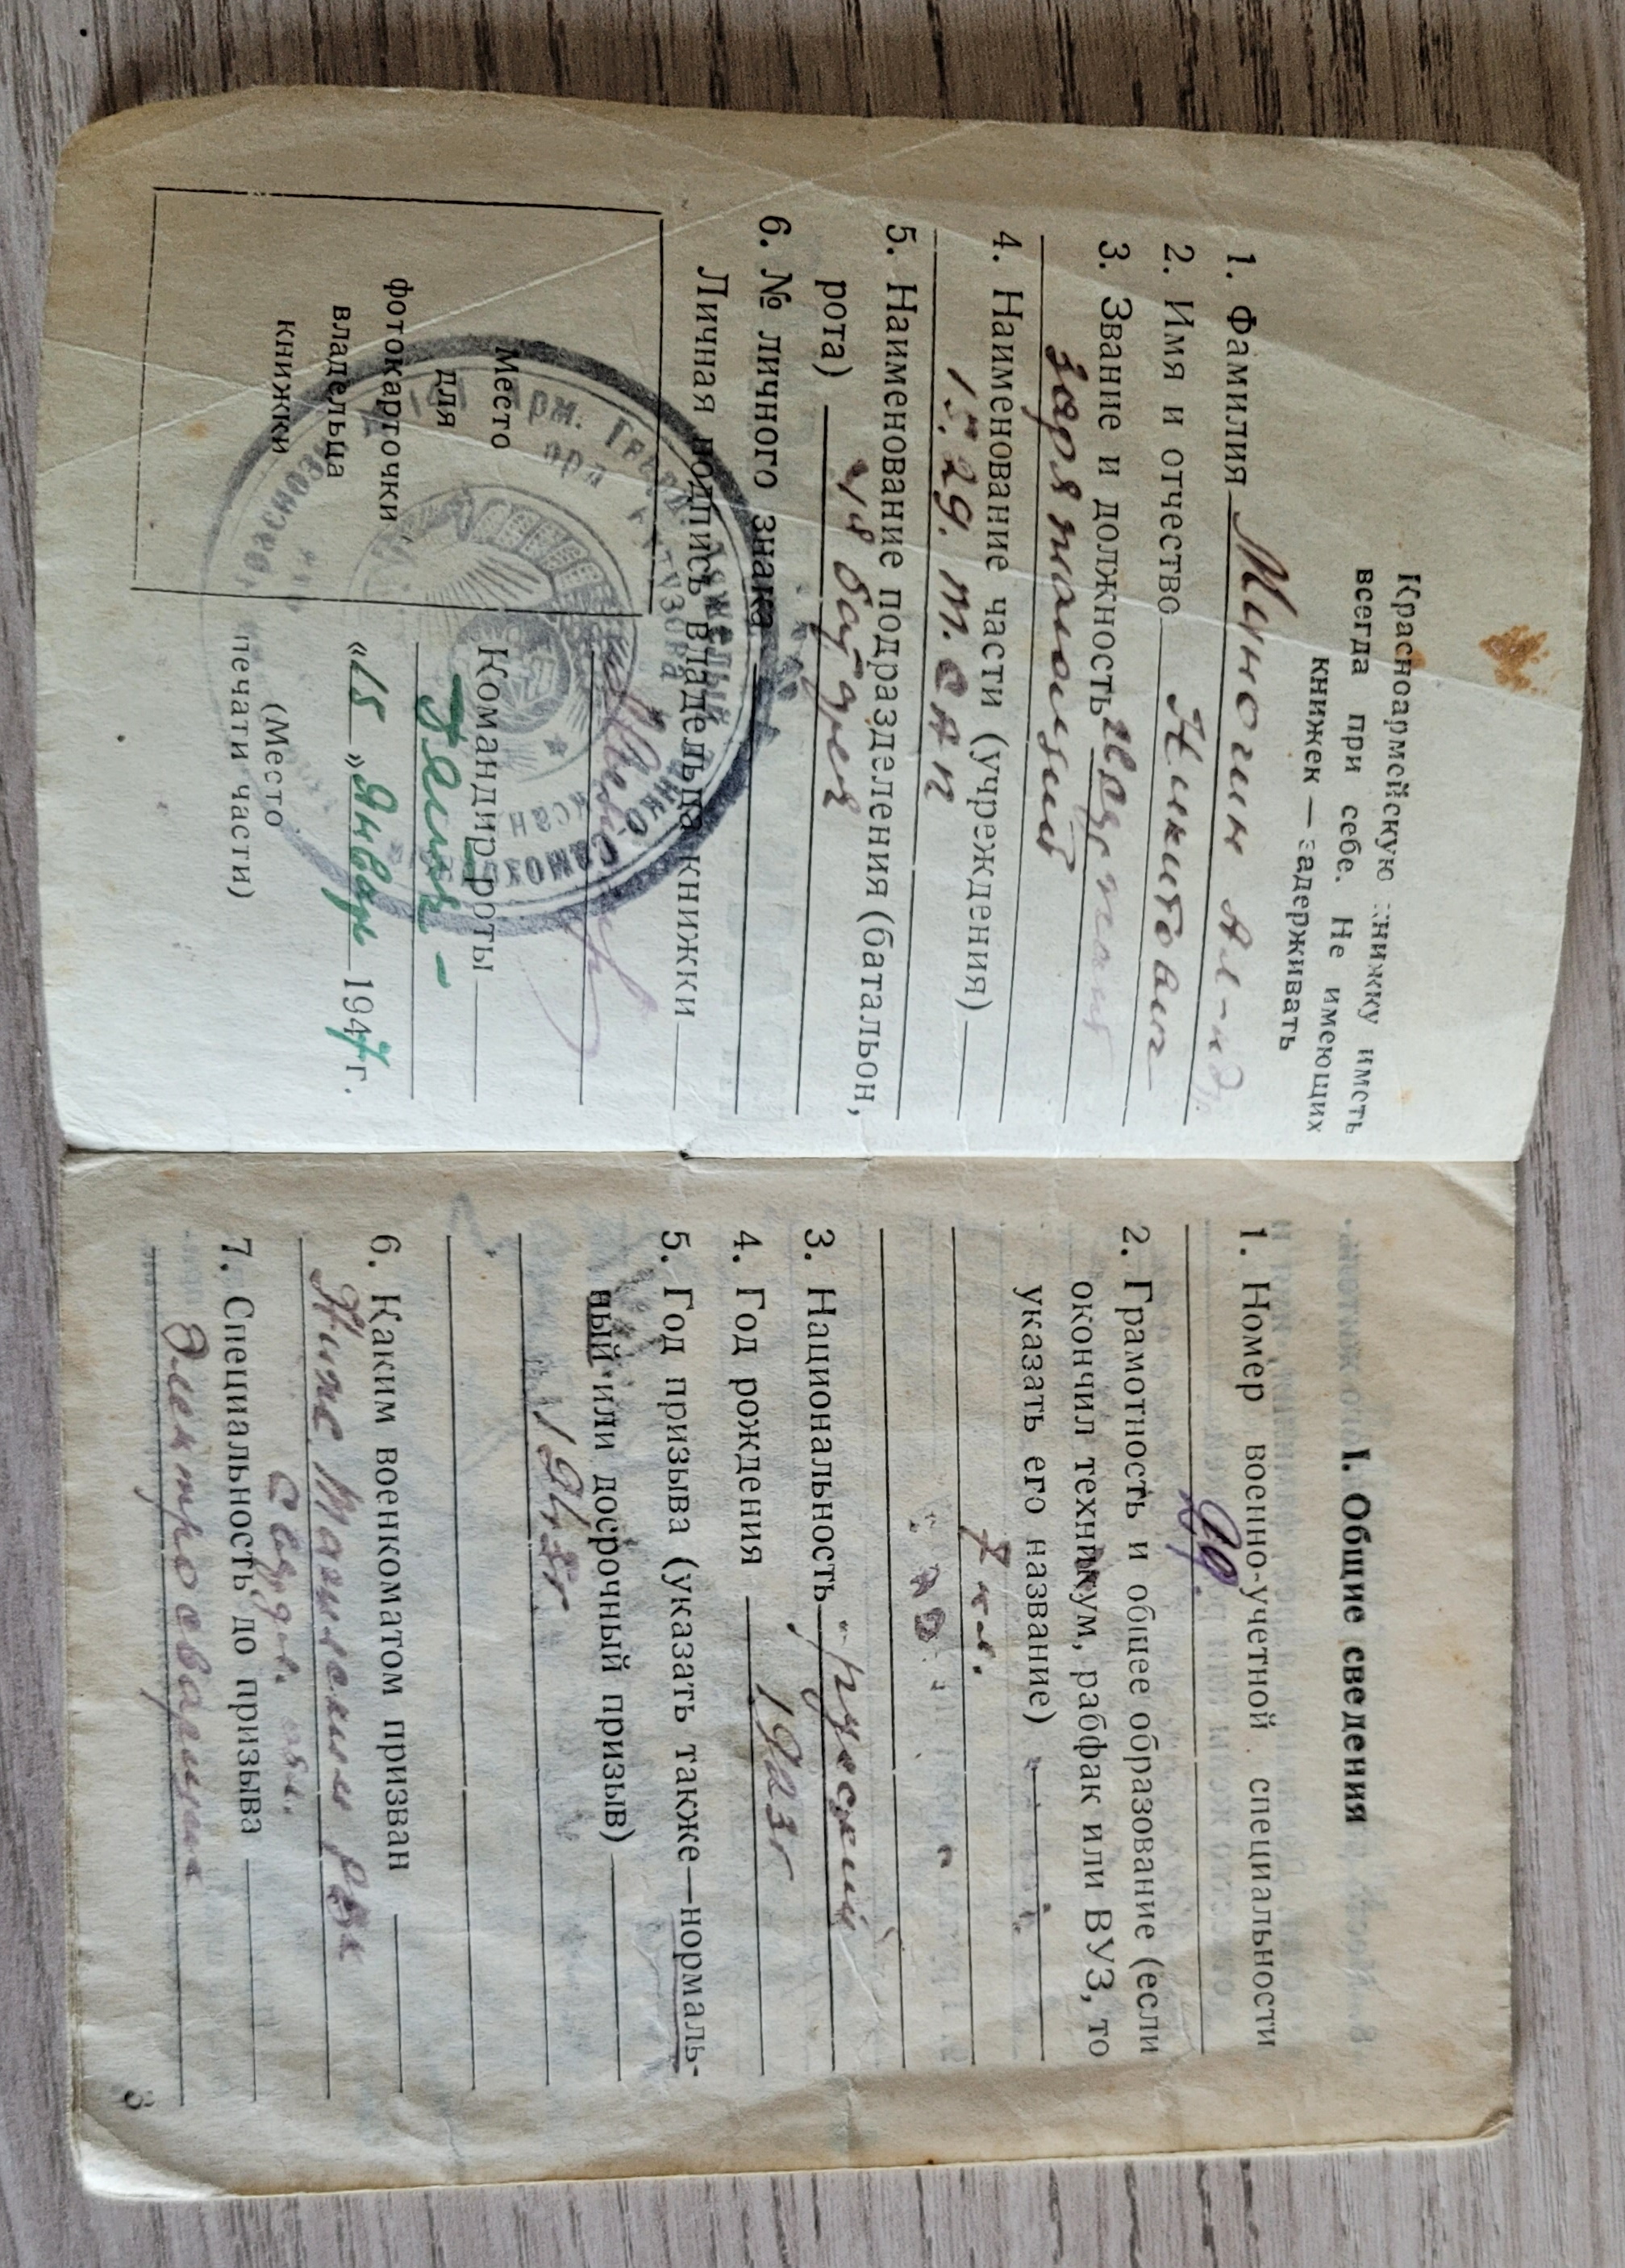 Красноармейскую книжку иметь
всегда при себе. Не имеющих
книжек — задерживать
1. Фамилия Миногин Ал-нд.
2. Имя и отчество Никитович
3. Звание и должность
заряжающий
4. Наименование части (учреждения)
15. гв. т. САП
5. Наименование подразделения (батальон,
рота) батарея
6. № личного знака
Личная подпись владельца книжки
Место
для
фотокарточки
владельца
книжки
Командир роты
„15“ Январь 1947 г.
(Место
печати части)
I. Общие сведения
1. Номер военно-учетной специальности
2. Грамотность и общее образование (если
окончил техникум, рабфак или ВУЗ, то
указать его название)
7 кл.
3. Национальность русский
4. Год рождения 1923 г
5. Год призыва (указать также—нормаль-
ный или досрочный призыв)
6. Каким военкоматом призван
РВК
Свердл. обл.
7. Специальность до призыва
Электросварщик